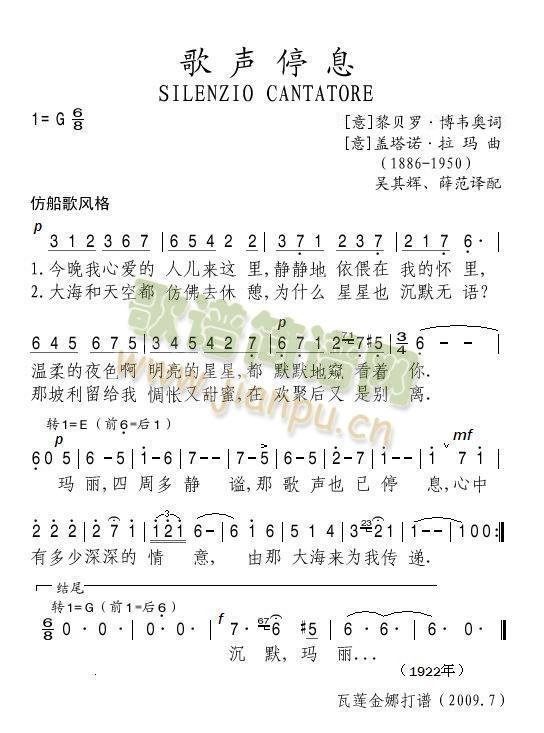 歌声停息
SILENZIO CANTATORE
1=G 6/8
[意]黎贝罗·博韦奥词
[意]盖塔诺·拉玛曲
(1886-1950)
吴其辉、薛范译配
仿船歌风格
p
3 1 2 3 6 7 | 6 5 4 2 2 | 3 - 3 2 1 7 | 6·
1.今晚我心爱的 人儿来这 里,静静地 依偎在 我的怀 里,
2.大海和天空都 仿佛去休 憩,为什么 星星也 沉默无 语?
p
6 4 5 6 7 5 |
温柔的夜色啊 明亮的星星,都 默默地窥 看着 你.
那坡利留给我 惆怅又甜蜜,在 欢聚后又 是别 离.
转1=E(前6=后1)
p mf
6 0 5 | 6 - 5 | 1 - 6 | 7 - - | 7 - 5 | 6 - 5 | 2 - 7 | 1 - - | 1 7 1
玛丽,四周多静 谧,那歌声也已停 息,心中
2 2 2 | 2 7 1 | 1 2 1 6 - | 6 - 5 | 4 - 5 | 5 1 4 | 3 - 2 | 1 - - | 1 0 0 :|
有多少深深的 情 意, 由那 大海来为我传 递.
结尾
转1=G(前1=后6)
f
6/8 0· 0· | 0· 0· | 7· 6 #5 | 6· 6· | 6· 0· ‖
沉 默,玛 丽...
(1922年)
瓦莲金娜打谱(2009.7)
歌谱简谱网
www.jianpu.cn